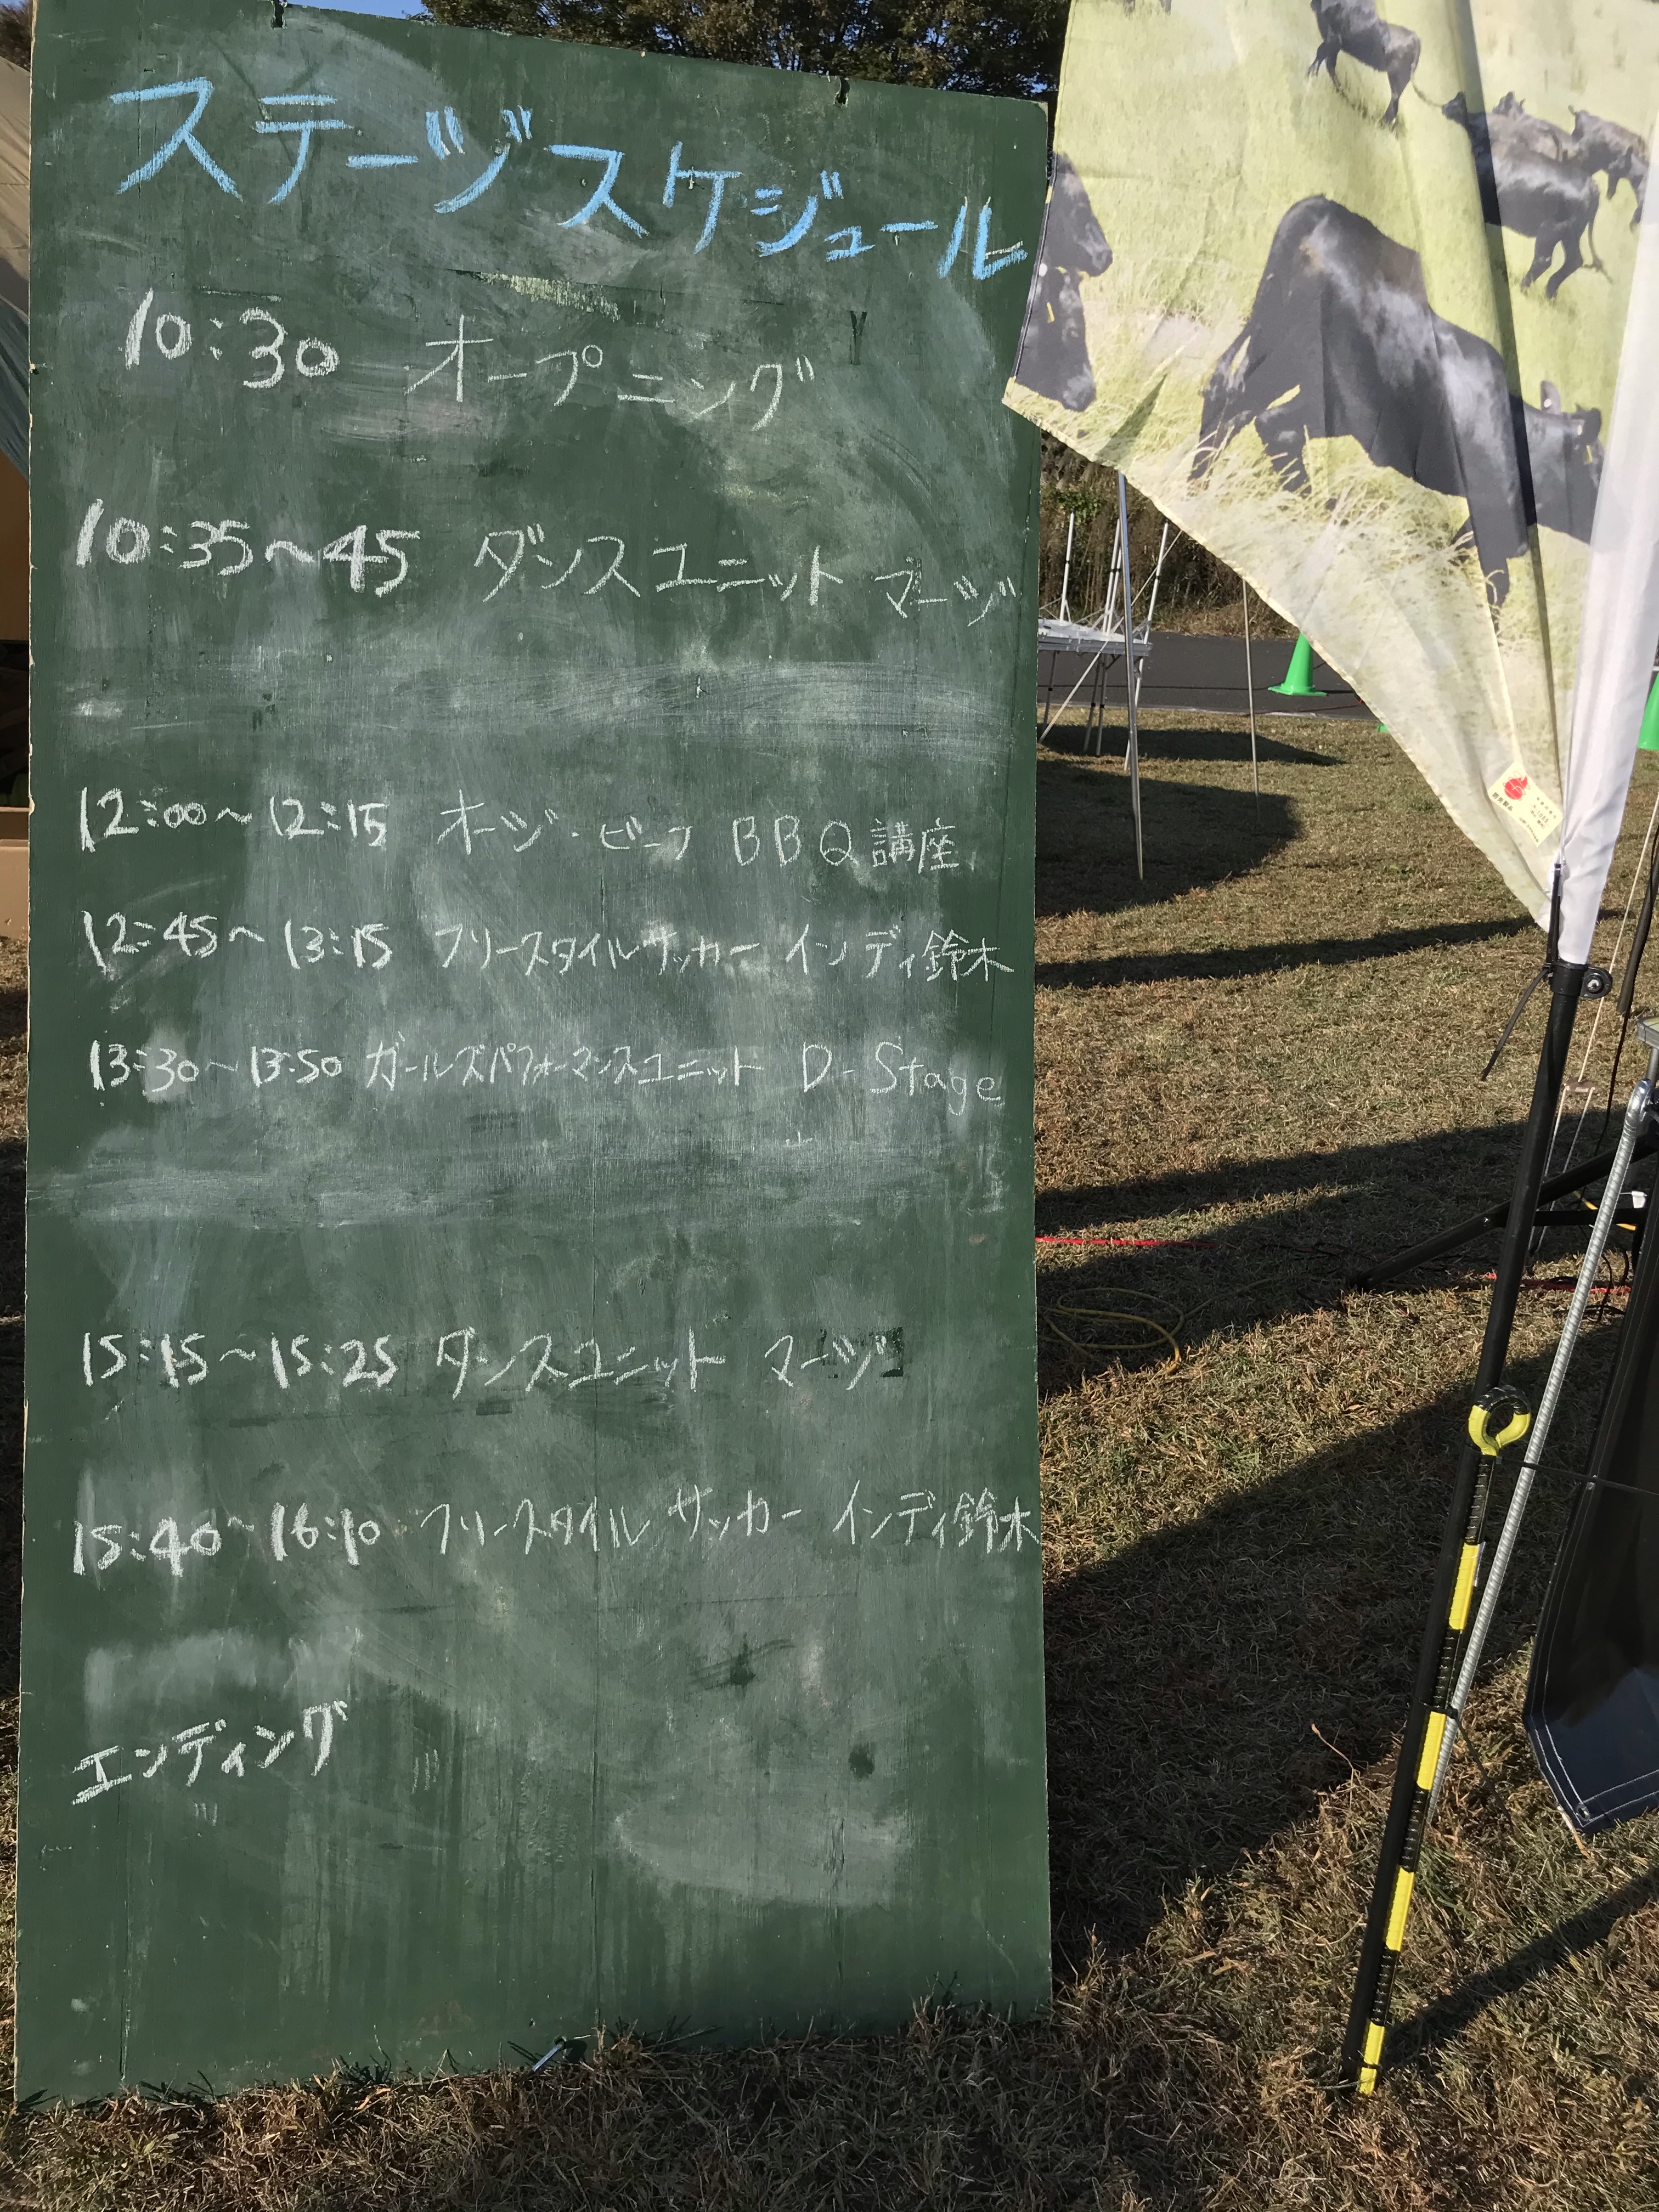 ステージスケジュール
10:30 オープニング
10:35〜45 ダンスユニット マージ
12:00〜12:15 オージ・ビーフ BBQ講座
12:45〜13:15 フリースタイルサッカー インディ鈴木
13:30〜13:50 ガールズパフォーマンスユニット D-Stage
15:15〜15:25 ダンスユニット マージ
15:40〜16:10 フリースタイルサッカー インディ鈴木
エンディング